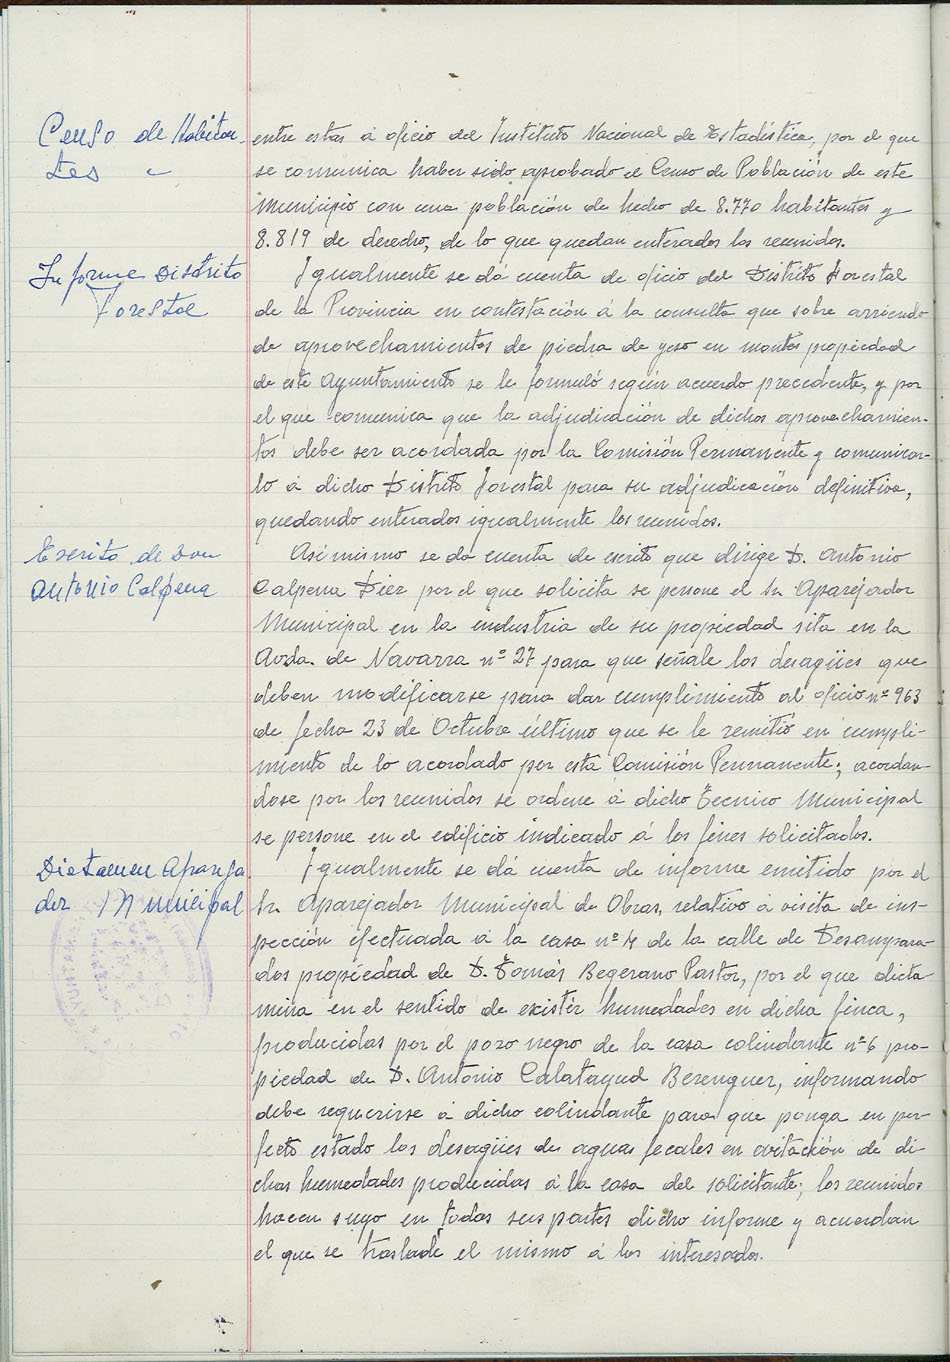 Censo de Habitan-
tes
entre estas á oficio del Instituto Nacional de Estadística, por el que
se comunica haber sido aprobado el Censo de Población de este
Municipio con una población de hecho de 8.770 habitantes y
8.819 de derecho, de lo que quedan enterados los reunidos.
Informe Distrito
Forestal
Igualmente se dá cuenta de oficio del Distrito Forestal
de la Provincia en contestación á la consulta que sobre arriendo
de aprovechamientos de piedra de yeso en montes propiedad
de este Ayuntamiento se le formuló según acuerdo precedente, y por
el que comunica que la adjudicación de dichos aprovechamien-
tos debe ser acordada por la Comisión Permanente y comunicar-
lo á dicho Distrito Forestal para su adjudicación definitiva,
quedando enterados igualmente los reunidos.
Escrito de Don
Antonio Calpena
Asímismo se da cuenta de escrito que dirige D. Antonio
Calpena Diez por el que solicita se persone el Sr. Aparejador
Municipal en la industria de su propiedad sita en la
Avda. de Navarra nº 27 para que señale los desagües que
deben modificarse para dar cumplimiento al oficio nº 963
de fecha 23 de Octubre último que se le remitió en cumpli-
miento de lo acordado por esta Comisión Permanente; acordan-
dose por los reunidos se ordene á dicho Tecnico Municipal
se persone en el edificio indicado á los fines solicitados.
Dictamen Apareja
dor Municipal
Igualmente se dá cuenta de informe emitido por el
Sr. Aparejador Municipal de Obras, relativo a visita de ins-
pección efectuada á la casa nº 4 de la calle de Desampara-
dos propiedad de D. Tomás Begerano Pastor, por el que dicta-
mina en el sentido de existir humedades en dicha finca,
producidas por el pozo negro de la casa colindante nº 6 pro-
piedad de D. Antonio Calatayud Berenguer, informando
debe requerirse á dicho colindante para que ponga en per-
fecto estado los desagües de aguas fecales en evitación de di-
chas humedades producidas á la casa del solicitante; los reunidos
hacen suyo en todas sus partes dicho informe y acuerdan
el que se traslade el mismo á los interesados.